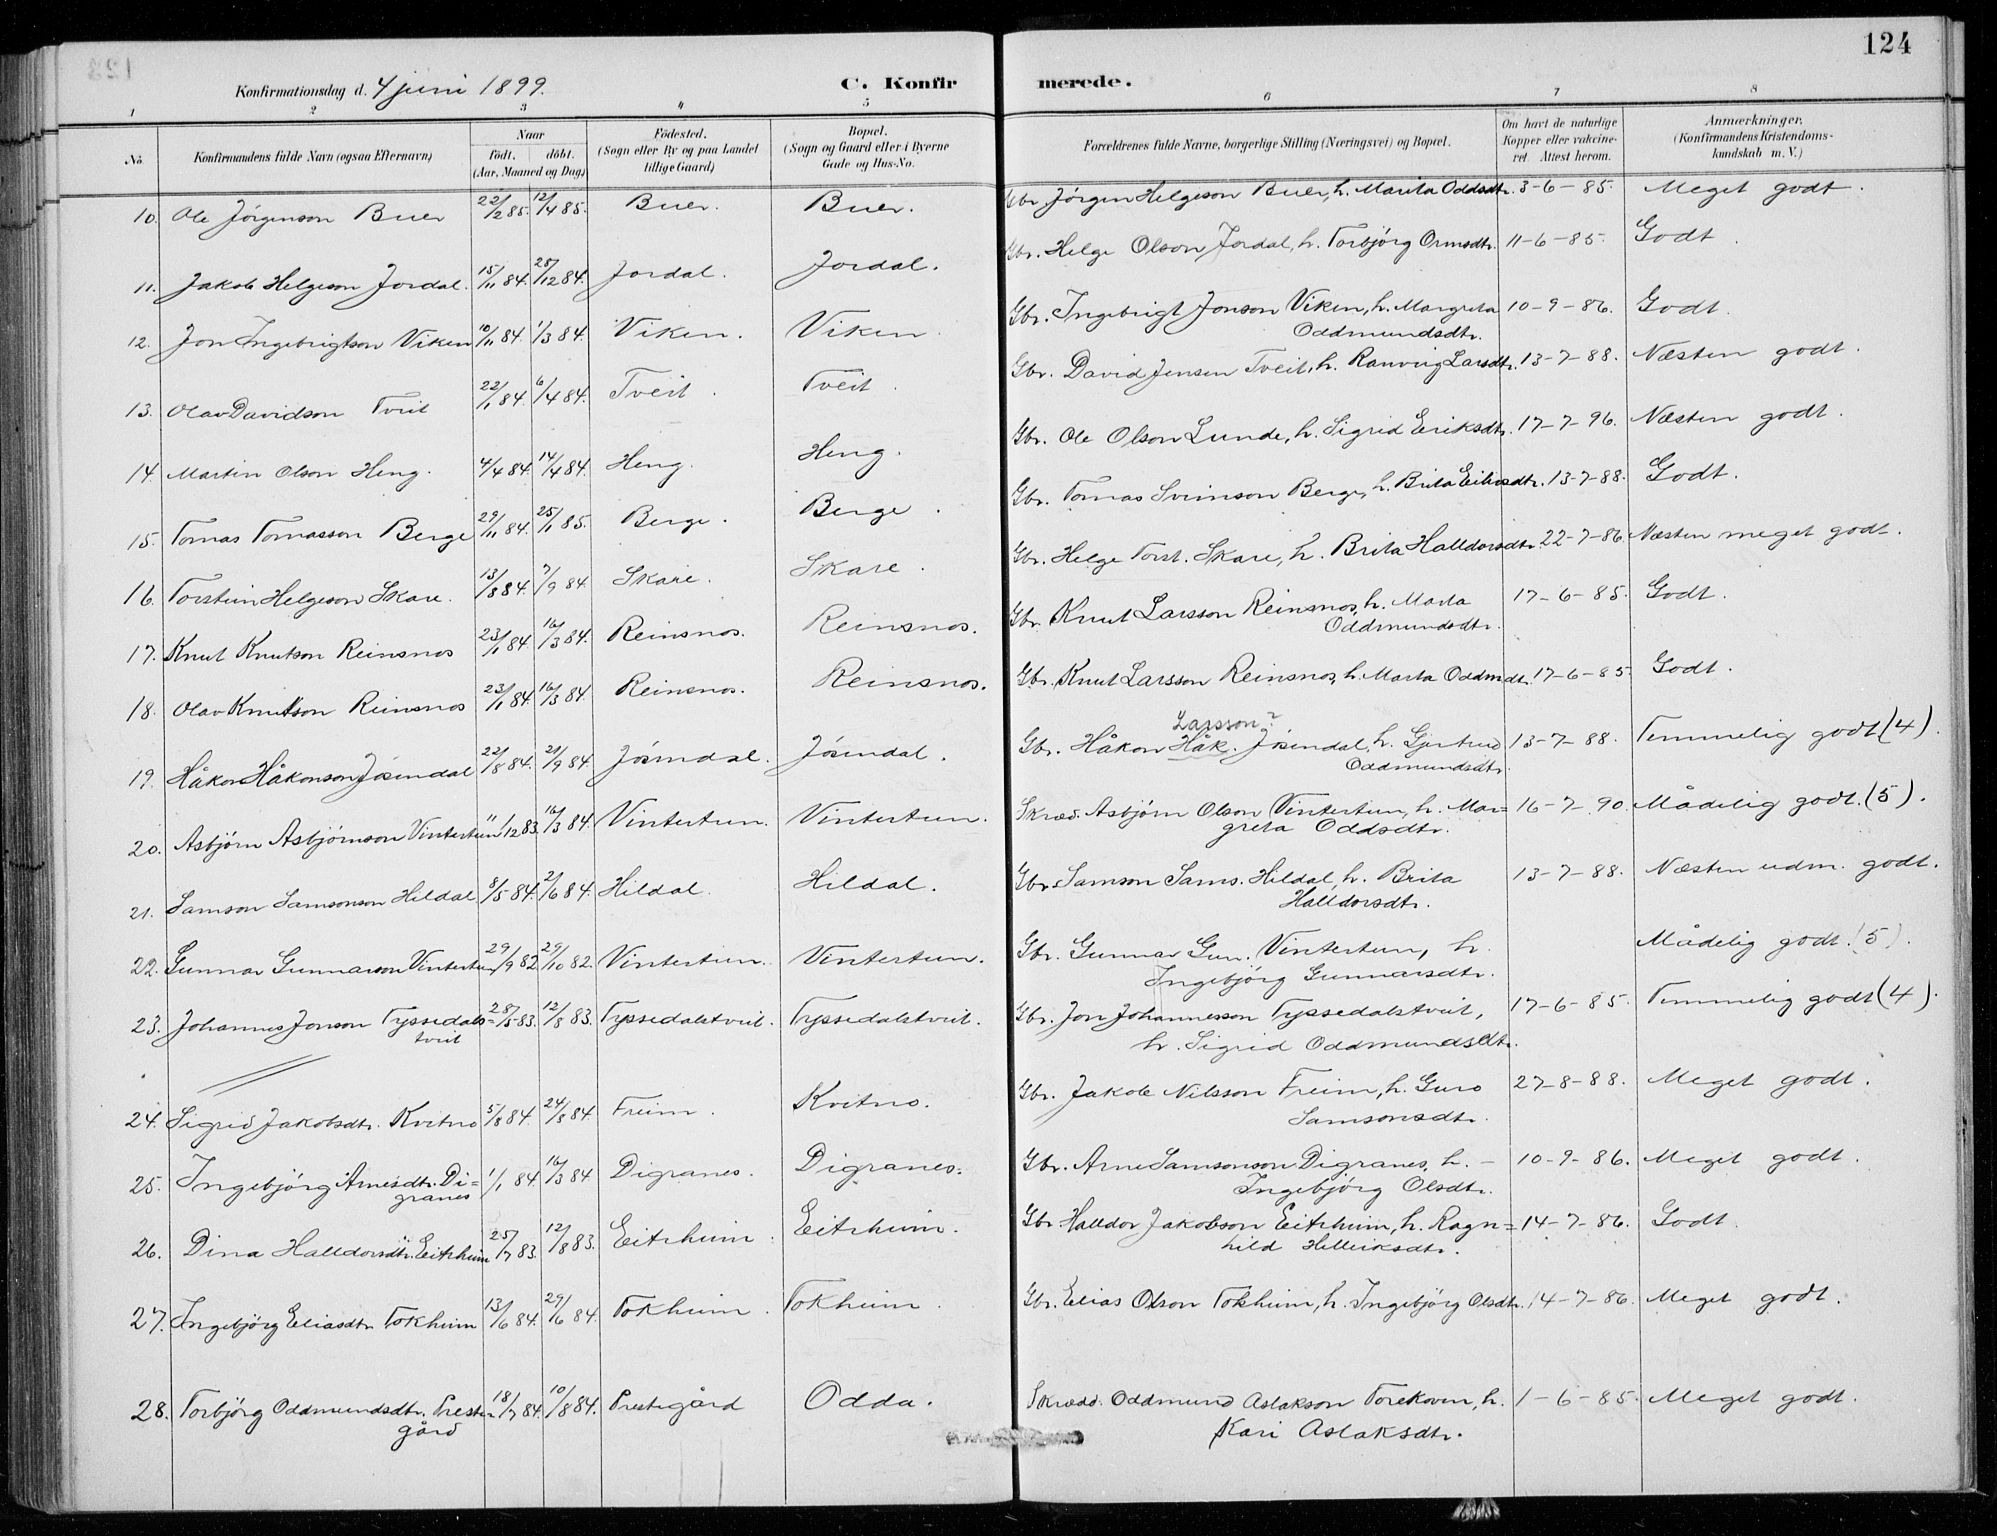 124
Konfirmationsdag d. 4 juni 1899.
C. Konfir merede.
1 2 3 4 5 6 7 8
No.
Konfirmandens fulde Navn (ogsaa Efternavn)
Naar
födt. döbt.
(Aar, Maaned og Dag)
Födested.
(Sogn eller By og paa Landet
tillige Gaard)
Bopæl.
(Sogn og Gaard eller i Byerne
Gade og Hus-No.
Forældrenes fulde Navne, borgerlige Stilling (Næringsvei) og Bopæl.
Om havt de naturlige
Kopper eller vakcine-
ret. Attest herom.
Anmærkninger.
(Konfirmandens Kristendoms-
kundskab m. V.)
10. Ole Jörgenson Buer 22/2 85. 12/4 85. Buer. Buer. Gbr. Jörgen Helgeson Buer, h. Marita Oddsdtr. 3-6-85. Meget godt.
11. Jakob Helgeson Jordal. 15/11 84. 28/12 84. Jordal. Jordal. Gbr. Helge Olson Jordal, h. Torbjörg Ormsdtr. 11-6-85. Godt.
12. Jon Ingebrigtson Viken 10/11 84. 1/3 84. Viken. Viken Gbr. Ingebrigt Jonson Viken, h. Margreta 10-9-86. Godt.
Oddmundsdtr.
13. Olav Davidson Tveit 22/1 84. 6/4 84. Tveit. Tveit. Gbr. David Jensen Tveit, h. Ranveig Larsdtr. 13-7-88. Næsten godt.
14. Martin Olson Heng. 4/4 84. 14/4 84. Heng. Heng. Gbr. Ole Olson Lunde, h. Sigrid Eriksdtr. 17-7-96. Næsten godt.
15. Tomas Tomasson Berge 29/11 84. 25/1 85. Berge. Berge. Gbr. Tomas Sveinson Berge, h. Brita Eilivsdtr. 13-7-88. Godt.
16. Torstein Helgeson Skare. 13/8 84. 7/9 84. Skare. Skare. Gbr. Helge Torst. Skare, h. Brita Halldorsdtr. 22-7-86. Næsten meget godt.
17. Knut Knutson Reinsnos 23/1 84. 16/3 84. Reinsnos. Reinsnos. Gbr. Knut Larsson Reinsnos, h. Marta 17-6-85. Godt.
Oddmundsdtr.
18. Olav Knutson Reinsnos 23/1 84. 16/3 84. Reinsnos. Reinsnos. Gbr. Knut Larsson Reinsnos, h. Marta Oddmdt. 17-6-85. Godt.
Larsson?
19. Håkon Håkonson Jösendal 22/8 84. 21/9 84. Jösendal. Jösendal. Gbr. Håkon Håk. Jösendal, h. Gjertrud 13-7-88. Temmelig godt (4).
Oddmundsdtr.
20. Asbjörn Asbjörnson Vintertun 11/12 83. 16/3 84. Vintertun. Vintertun. Skræd. Asbjörn Olson Vintertun, h. Mar= 16-7-90. Mådelig godt. (5).
greta Oddsdtr.
21. Samson Samsonson Hildal 8/5 84. 2/6 84. Hildal. Hildal. Gbr. Samson Sams. Hildal, h. Brita 13-7-88. Næsten udm. godt.
Halldorsdtr.
22. Gunnar Gunnarson Vintertun 29/9 82. 29/10 82. Vintertun. Vintertun. Gbr. Gunnar Gun. Vintertun, h. Mådelig godt. (5).
Ingebjörg Gunnarsdtr.
23. Johannes Jonson Tyssedals= 28/5 83. 12/8 83. Tyssedalstveit. Tyssedalstveit. Gbr. Jon Johannesson Tyssedalstveit, 17-6-85. Temmelig godt (4).
tveit h. Sigrid Oddmundsdtr.
24. Sigrid Jakobsdtr. Kvitno 5/8 84. 24/8 84. Freim. Kvitno. Gbr. Jakob Nilsson Freim, h. Guro 27-8-88. Meget godt.
Samsonsdtr.
25. Ingebjörg Arnesdtr. Di= 1/1 84. 16/3 84 Digranes. Digranes. Gbr. Arne Samsonson Digranes, h. 10-9-86. Meget godt.
granes Ingebjörg Olsdtr.
26. Dina Halldorsdtr. Eitrheim 25/7 83. 12/8 83. Eitrheim. Eitrheim. Gbr. Halldor Jakobson Eitrheim, h. Ragn= 14-7-86. Godt.
hild Helleiksdtr.
27. Ingebjörg Eliasdtr Tokheim 13/6 84. 29/6 84. Tokheim. Tokheim. Gbr. Elias Olson Tokheim, h. Ingebjörg Olsdtr. 14-7-86. Meget godt.
28. Torbjörg Oddmundsdtr. Preste= 18/7 84. 10/8 84. Prestegård Odda. Skrædd. Oddmund Aslakson Torekoven, h. 1-6-85. Meget godt.
gård Kari Aslaksdtr.